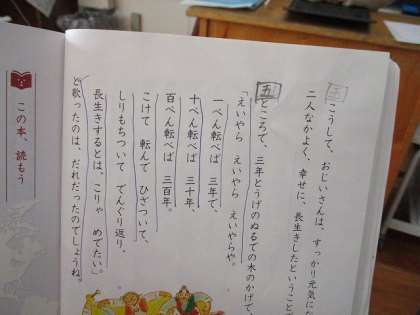 こうして、おじいさんは、すっかり元気にな
二人なかよく、幸せに、長生きしたということ
五
ところで、三年とうげのぬるでの木のかげで、
「えいやら えいやら えいやらや。
一ぺん転べば 三年で、
十ぺん転べば 三十年、
百ぺん転べば 三百年。
こけて 転んで ひざついて、
しりもちついて でんぐり返り、
長生きするとは、こりゃ めでたい。」
と歌ったのは、だれだったのでしょうね。
この本、読もう